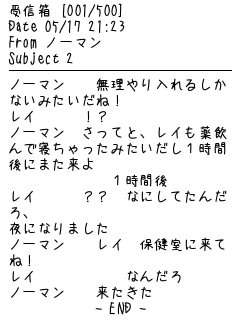 受信箱 [001/500]
Date 05/17 21:23
From ノーマン
Subject 2
ノーマン　　無理やり入れるしか
ないみたいだね！
レイ　　　！？
ノーマン　さってと、レイも薬飲
んで寝ちゃったみたいだし１時間
後にまた来よ
１時間後
レイ　　　？？　なにしてたんだ
ろ、
夜になりました
ノーマン　　レイ　保健室に来て
ね！
レイ　　　　　　なんだろ
ノーマン　　来たきた
- END -